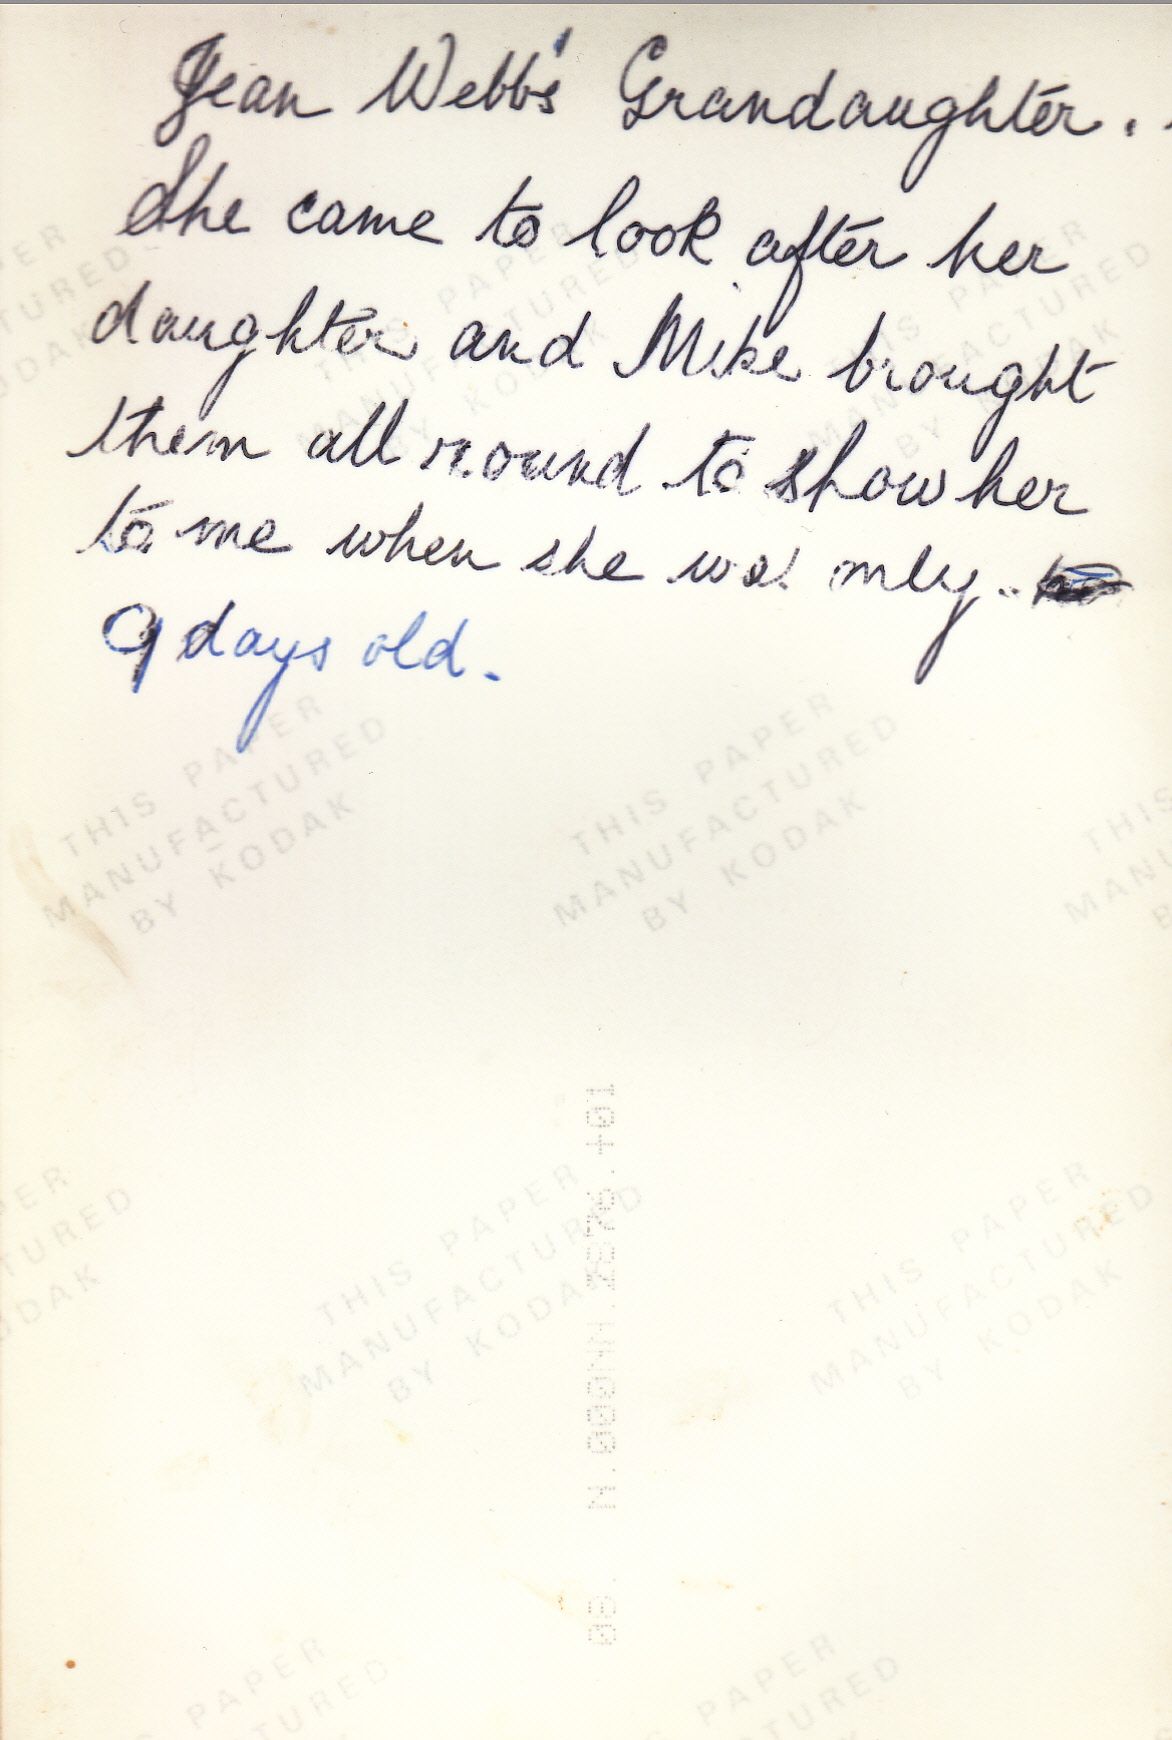 Jean Webb's Grandaughter.
She came to look after her
daughter and Mike brought
them all round to show her
to me when she was only
9 days old.
THIS PAPER
MANUFACTURED
BY KODAK
THIS PAPER
MANUFACTURED
BY KODAK
THIS PAPER
MANUFACTURED
BY KODAK
THIS PAPER
MANUFACTURED
BY KODAK
THIS PAPER
MANUFACTURED
BY KODAK
THIS PAPER
MANUFACTURED
BY KODAK